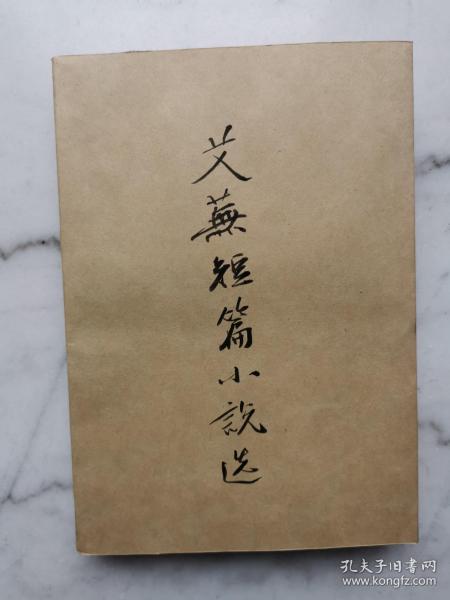 艾蕪短篇小說选
孔夫子旧书网
www.kongfz.com